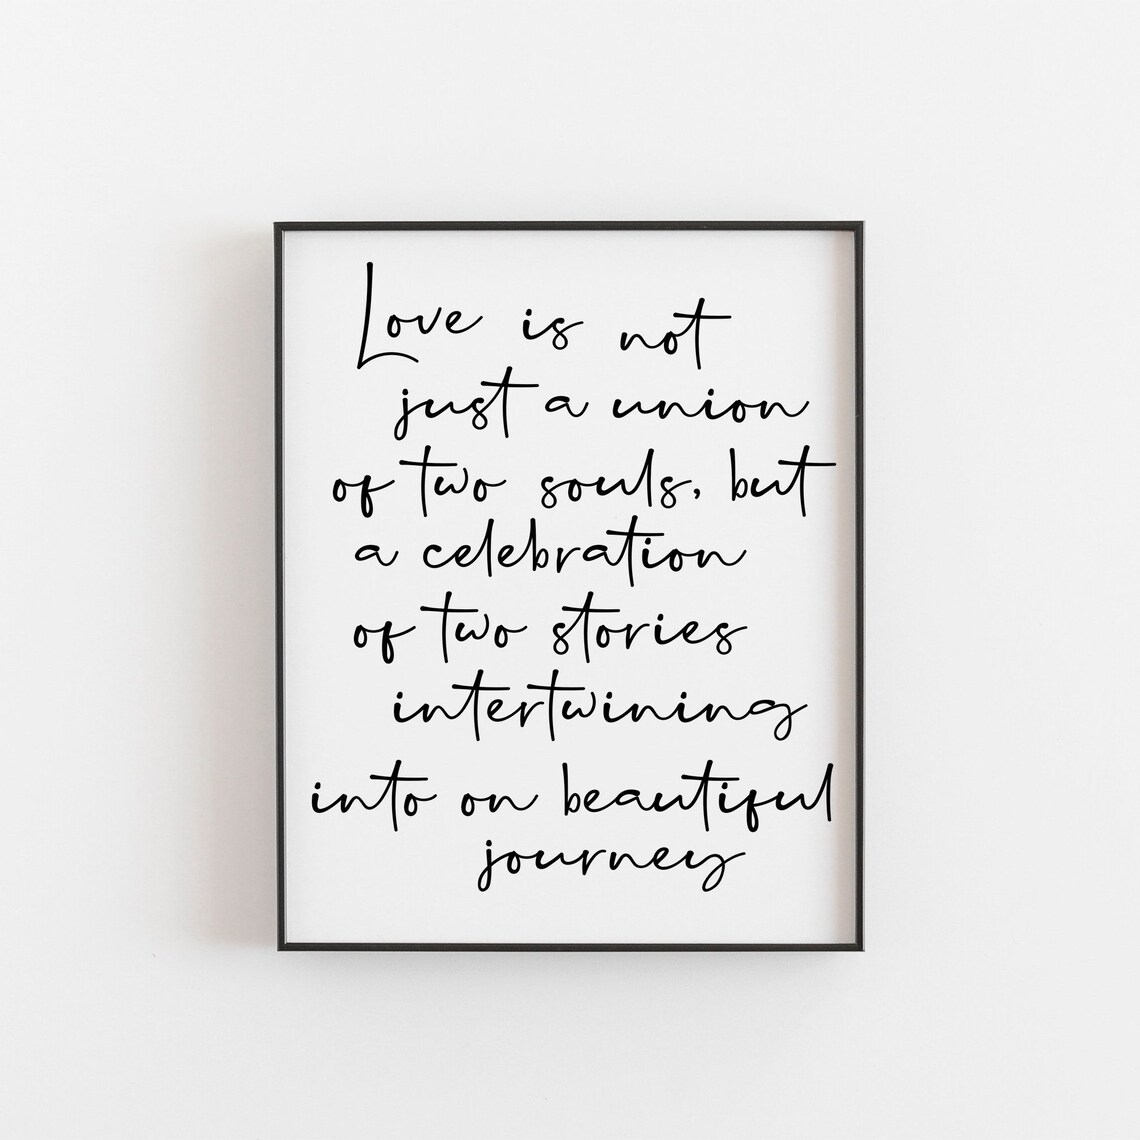 Love is not
just a union
of two souls, but
a celebration
of two stories
intertwining
into on beautiful
journey